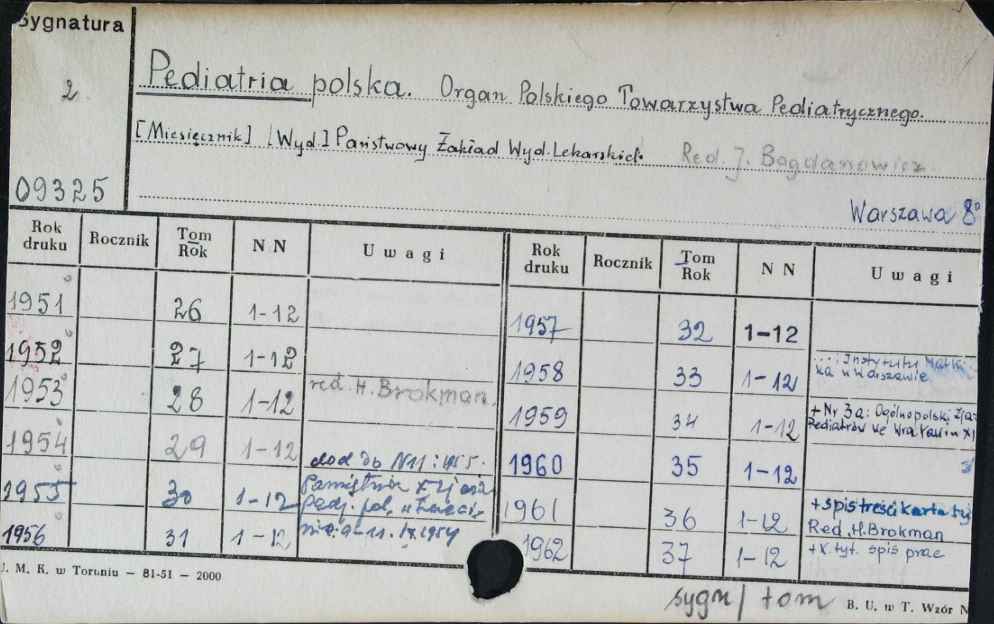 Sygnatura
2
09325
Pediatria polska. Organ Polskiego Towarzystwa Pediatrycznego.
[Miesięcznik] [Wyd.] Państwowy Zakład Wyd. Lekarskich. Red. J. Bogdanowicz
Warszawa 8°
Rok druku Rocznik Tom Rok N N Uwagi
1951 26 1-12
1952 27 1-12
1953 28 1-12 red. H. Brokman
1954 29 1-12
1955 30 1-12 dod. do N11: 1955.
Pamiętnik
Pedj. pol. w
1954
1956 31 1-12
Rok druku Rocznik Tom Rok N N Uwagi
1957 32 1-12
1958 33 1-12 Instytutu Matki
w Warszawie
1959 34 1-12 + Nr 3a: Ogólnopolski Zjaz
Pediatrów we Wrocławiu XI
1960 35 1-12
1961 36 1-12 + spis treści karta ty
Red. H. Brokman
1962 37 1-12 + k. tyt. spis prac
J. M. K. w Toruniu — 81-51 — 2000
sygn/tom
B. U. w T. Wzór N